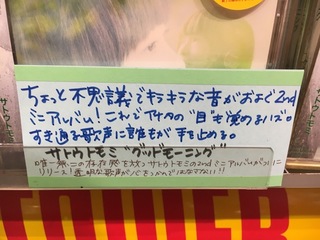 ちょっと不思議でキラキラな音がおよぐ2nd
ミニアルバム！これでアナタの“目”も覚めるハズ。
すき通る歌声に誰もが手を止める。
サトウトモミ“グッドモーニング”
唯一無二の存在感を放つサトウトモミの2ndミニアルバムがついに
リリース!!透明な歌声が心をつかんではなさない!!
TOWER